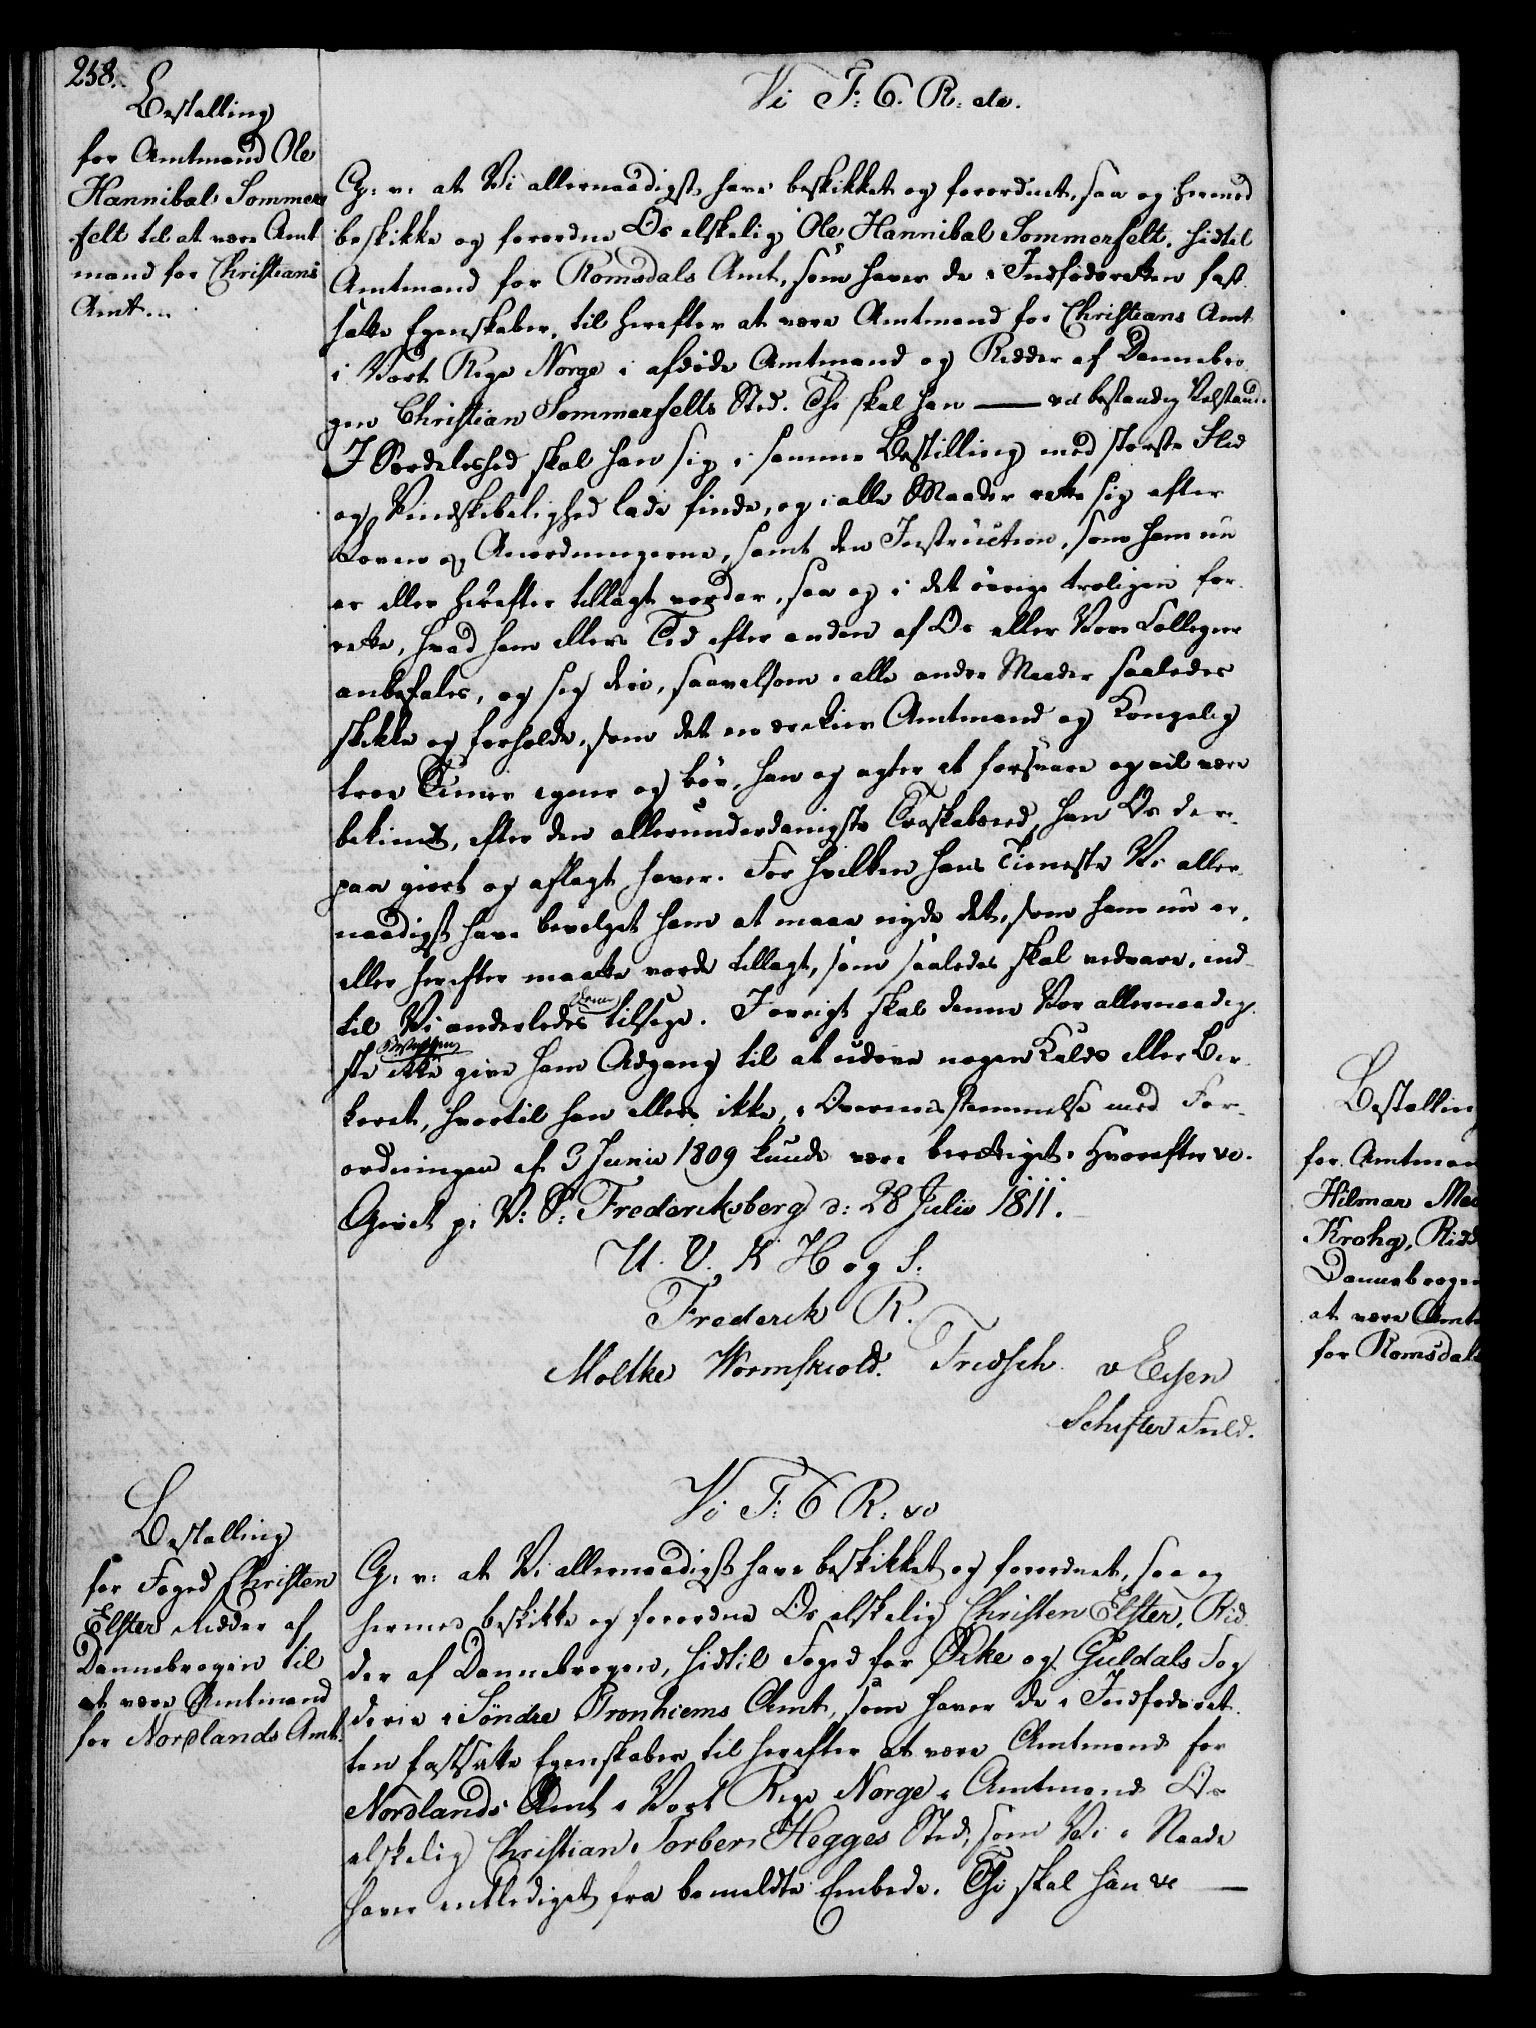 258.
Bestalling
for Amtmand Ole
Hannibal Sommer
felt til at være Amt
mand for Christians
Amt...
Vi F: 6. R: etc.
G: v: at Vi allernaadigst have beskikket og forordnet, saa og hermed
beskikke og forordne Os elskelig Ole Hannibal Sommerfelt, hidtil
Amtmand for Romsdals Amt, som haver de i Indfødsretten fast
satte Egenskaber, til herefter at være Amtmand for Christians Amt
i Vort Rige Norge i afdøde Amtmand og Ridder af Dannebro
gen Christian Sommerfelts Sted. Thi skal han —— ved bestandig Velstand.
I Særdeleshed skal han sig i samme Bestilling med største Flid
og Vindskibelighed lade finde, og i alle Maader rette sig efter
Loven og Anordningerne, samt den Instruction, som ham nu
er eller herefter tillagt vorder, saa og i det øvrige troligen for-
rette, hvad ham ellers Tid efter anden af Os eller Vore Collegier
anbefales, og sig deri, saavelsom i alle andre Maader saaledes
skikke og forholde, som det en ærekiær Amtmand og Kongelig
troe Tiener egner og bør, han og agter at forsvare og vil være
bekiendt, efter den allerunderdanigste Troskabseed, han Os der-
paa giort og aflagt haver. For hvilken hans Tieneste Vi aller-
naadigst have bevilget ham at maae nyde det, som ham nu er,
eller herefter maatte vorde tillagt, som saaledes skal vedvare, ind-
til Vi anderledes derom tilsige. I øvrigt skal denne Vor allernaadig-
ste Bestalling ikke give ham Adgang til at udøve nogen Kalds eller Ber-
keret, hvortil han ellers ikke, i Overensstemmelse med For-
ordningen af 3 Junii 1809 kunde være berettiget. Hvorefter etc.
Givet p: V: S: Frederiksberg d: 28 Julii 1811.
U. V. K H og S:
Frederik R.
Moltke Wormskiold. Fridsch v Essen
Schifter Fuld.
Bestalling
for Foged Christen
Elster Ridder af
Dannebrogen til
at være Amtmand
for Nordlands Amt.
Vi F: 6 R: etc
G: v: at Vi allernaadigst have beskikket og forordnet, saa og
hermed beskikke og forordne Os elskelig Christen Elster, Rid-
der af Dannebrogen, hidtil Foged for Ørke og Guldals Fog
derie i Søndre Tronhiems Amt, som haver de i Indfødsret-
ten fastsatte Egenskaber til herefter at være Amtmand for
Nordlands Amt i Vort Rige Norge i Amtmand Os
elskelig Christian Torber Hegges Sted, som Vi i Naade
haver entlediget fra bemeldte Embede. Thi skal han etc ——
Bestallin
for Amtman
Hilmar Me
Krohg, Ridd
Dannebrogen
at være Amt
for Romsdals